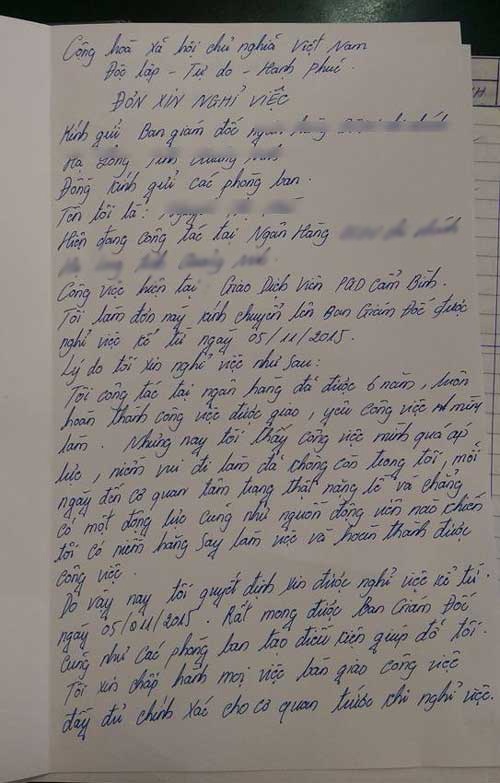 Cộng hoà xã hội chủ nghĩa Việt Nam
Độc lập - Tự do - Hạnh phúc.
ĐƠN XIN NGHỈ VIỆC
Kính gửi Ban giám đốc ngân hàng
Hạ Long
Đồng kính gửi các phòng ban.
Tên tôi là:
Hiện đang công tác tại Ngân Hàng
Công việc hiện tại Giao Dịch Viên PGD Cẩm Bình.
Tôi làm đơn này kính chuyển lên Ban Giám Đốc được
nghỉ việc kể từ ngày 05/11/2015.
Lý do tôi xin nghỉ việc như sau:
Tôi công tác tại ngân hàng đã được 6 năm, luôn
hoàn thành công việc được giao, yêu công việc mình
làm. Nhưng nay tôi thấy công việc mình quá áp
lực, niềm vui đi làm đã không còn trong tôi, mỗi
ngày đến cơ quan tâm trạng thật nặng lề và chẳng
có một động lực cũng như nguồn động viên nào khiến
tôi có niềm hăng say làm việc và hoàn thành được
công việc.
Do vậy nay tôi quyết định xin được nghỉ việc kể từ
ngày 05/011/2015. Rất mong được Ban Giám Đốc
cũng như các phòng ban tạo điều kiện giúp đỡ tôi.
Tôi xin chấp hành mọi việc bàn giao công việc
đầy đủ chính xác cho cơ quan trước khi nghỉ việc.